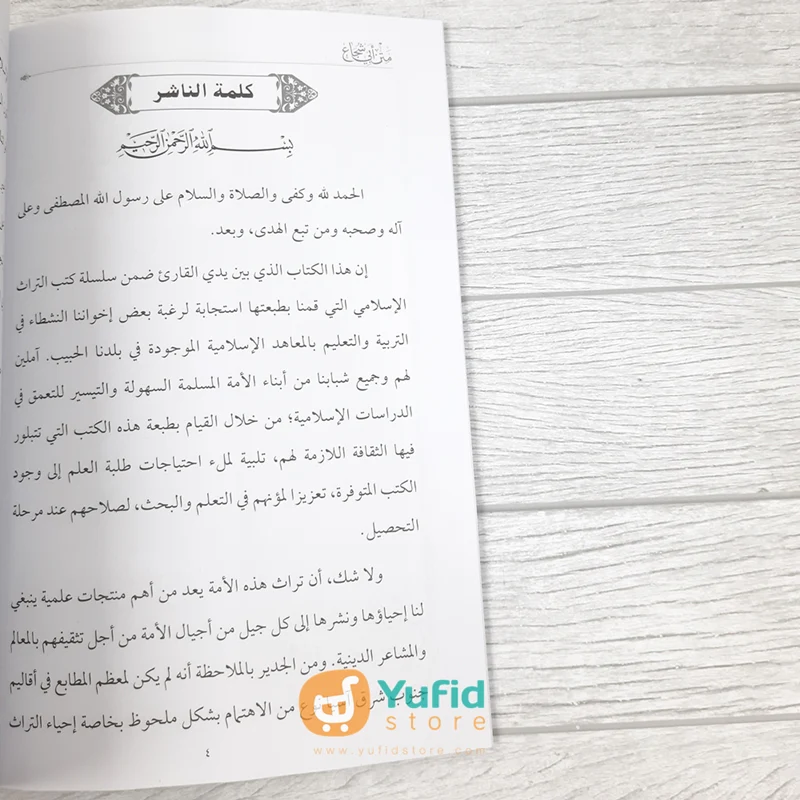 متن أبي شجاع
كلمة الناشر
بسم الله الرحمن الرحيم
الحمد لله وكفى والصلاة والسلام على رسول الله المصطفى وعلى
آله وصحبه ومن تبع الهدى، وبعد.
إن هذا الكتاب الذي بين يدي القارئ ضمن سلسلة كتب التراث
الإسلامي التي قمنا بطبعتها استجابة لرغبة بعض إخواننا النشطاء في
التربية والتعليم بالمعاهد الإسلامية الموجودة في بلدنا الحبيب. آملين
لهم وجميع شبابنا من أبناء الأمة المسلمة السهولة والتيسير للتعمق في
الدراسات الإسلامية؛ من خلال القيام بطبعة هذه الكتب التي تتبلور
فيها الثقافة اللازمة لهم، تلبية لملء احتياجات طلبة العلم إلى وجود
الكتب المتوفرة، تعزيزا لمؤنهم في التعلم والبحث، لصلاحهم عند مرحلة
التحصيل.
ولا شك، أن تراث هذه الأمة يعد من أهم منتجات علمية ينبغي
لنا إحياؤها ونشرها إلى كل جيل من أجيال الأمة من أجل تثقيفهم بالمعالم
والمشاعر الدينية. ومن الجدير بالملاحظة أنه لم يكن لمعظم المطابع في أقاليم
جنوب شرق من الاهتمام بشكل ملحوظ بخاصة إحياء التراث
٤
Yufid
store
www.yufidstore.com